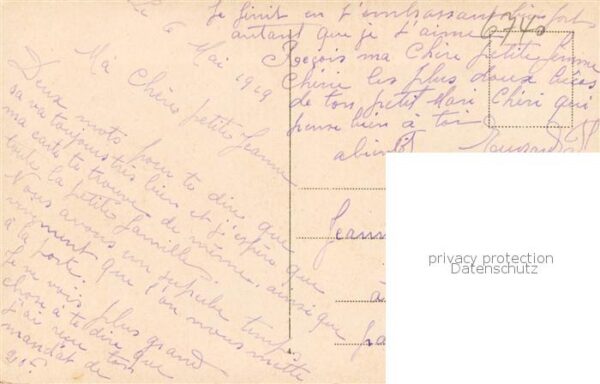 Le 6 Mai 1919
Ma Chère petite Jeanne
Deux mots pour te dire que
sa va toujours très bien et j'espère que
ma carte te trouve de même, ainsi que
toute la petite famille.
Nous avons un superbe temps
vivement que l'on nous mette
à la porte.
Je ne vois plus grand
chose à te dire que
j'ai reçu ton
mandat de
20f.
Je finit en t'embrassant bien fort
autant que je t'aime
Reçois ma Chère petite femme
Chérie les plus doux bécos
de ton petit Mari Chéri qui
pense bien à toi
abientôt
6740
Jeann
à
privacy protection
Datenschutz